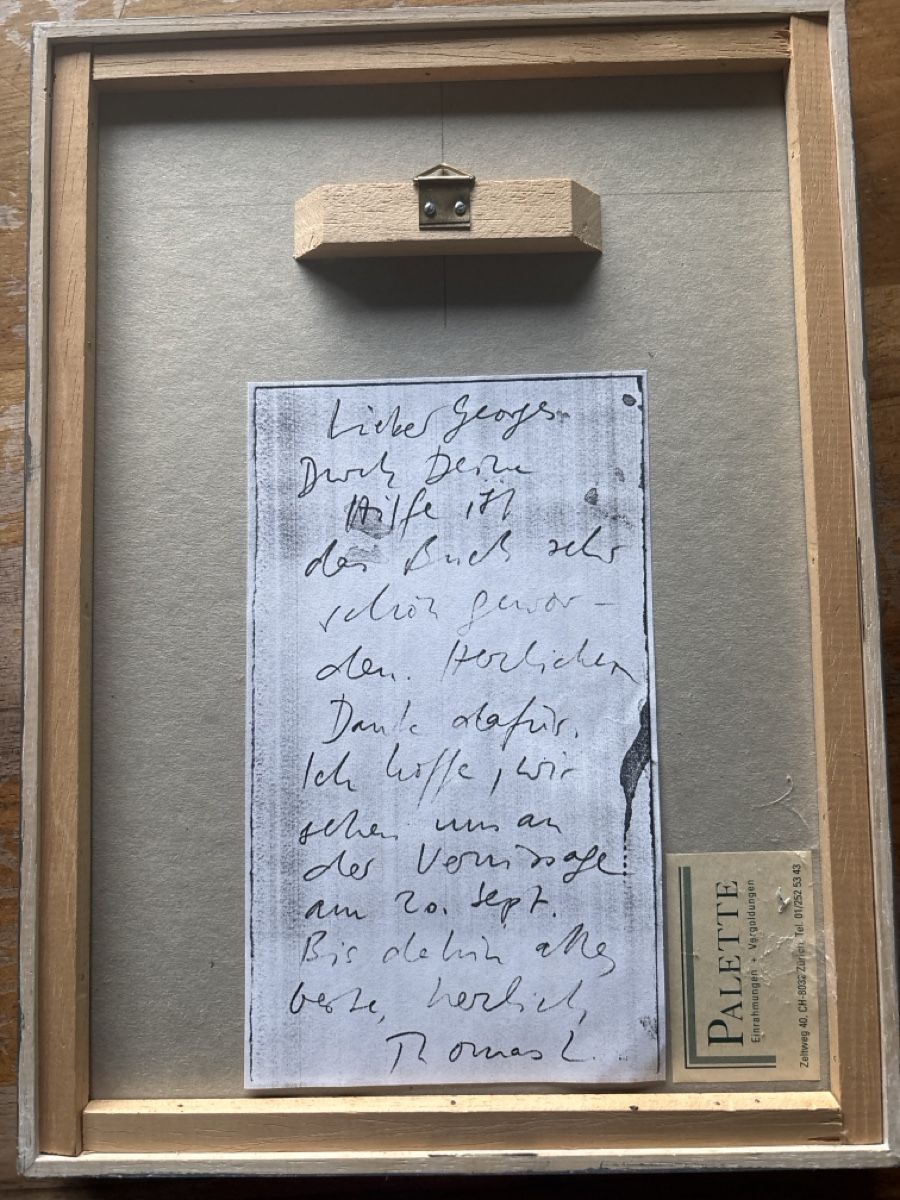 Lieber Georges
Durch Deine
Hilfe ist
das Buch sehr
schön gewor-
den. Herzlichen
Dank dafür.
Ich hoffe, wir
sehen uns an
der Vernissage
am 20. Sept.
Bis dahin alles
beste, herzlich,
Thomas L.
PALETTE
Einrahmungen + Vergoldungen
Zeltweg 40, CH-8032 Zürich, Tel. 01/252 53 43